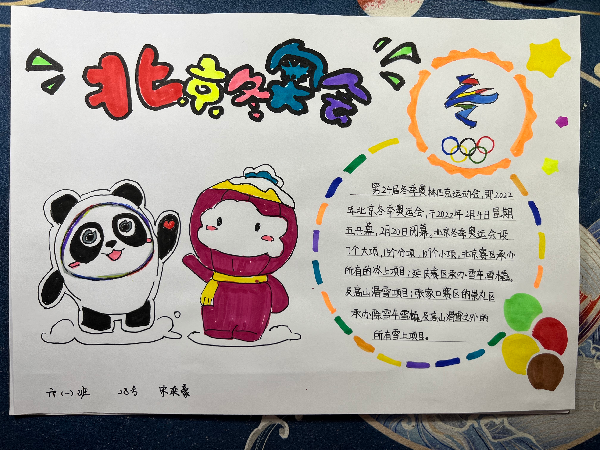 北京冬奥会
第24届冬季奥林匹克运动会,即2022
年北京冬季奥运会,于2022年2月4日星期
五开幕,2月20日闭幕。北京冬季奥运会设
7个大项,15个分项,109个小项。北京赛区承办
所有的冰上项目;延庆赛区承办雪车雪橇
及高山滑雪项目;张家口赛区的崇礼区
承办除雪车雪橇及高山滑雪之外的
所有雪上项目。
六(一)班 28号 宋